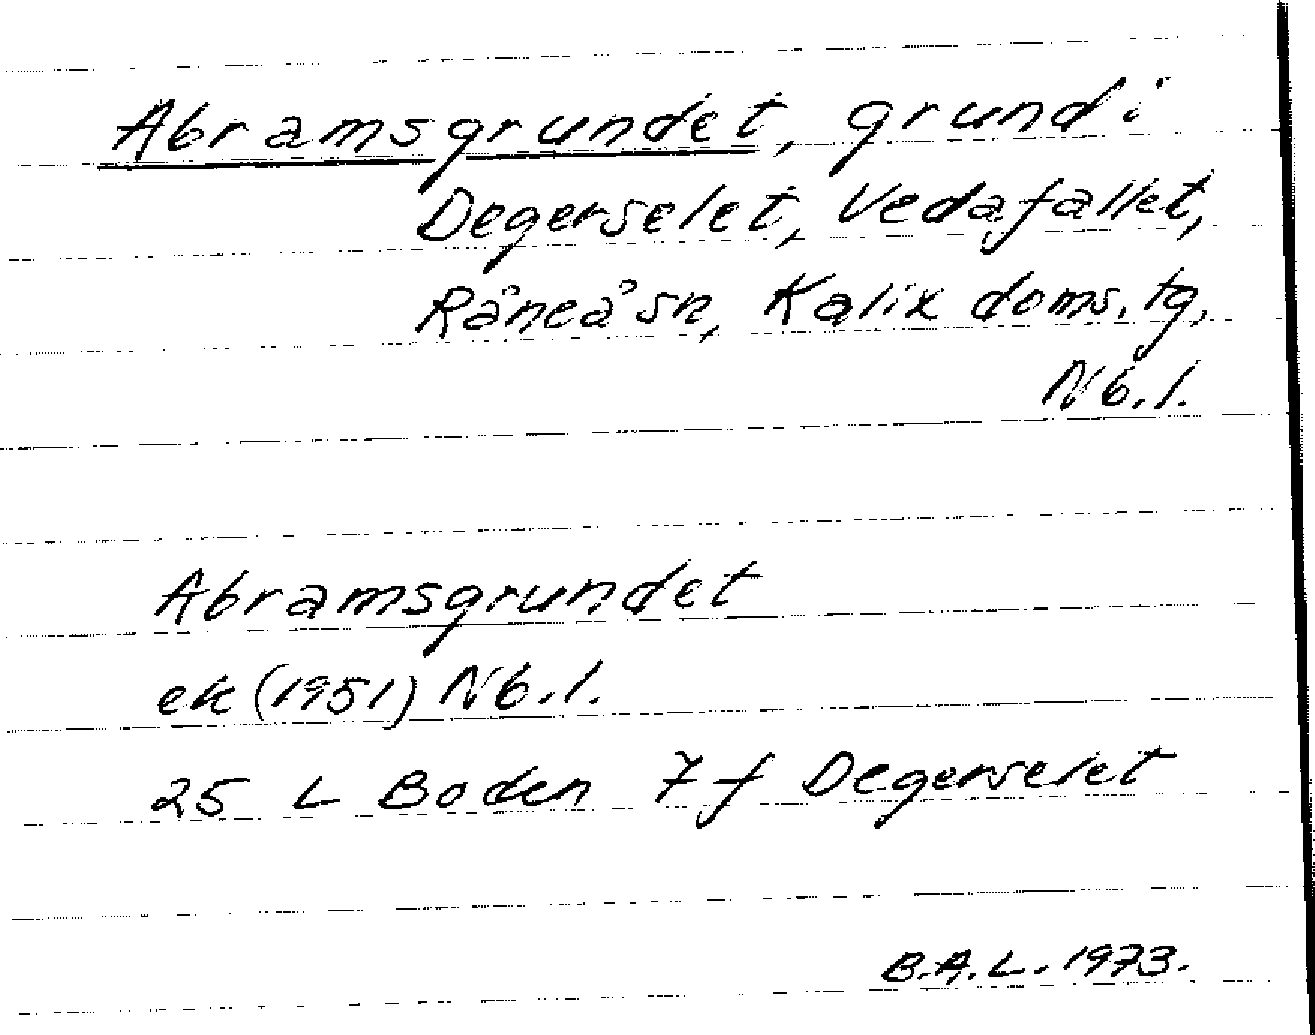 Abramsgrundet, grund i
Degerselet, Vedafallet,
Råneå sn, Kalix doms. tg,
Nb. l.
Abramsgrundet
ek (1951) Nb. l.
25 L Boden 7 f Degerselet
B.A.L. 1973.